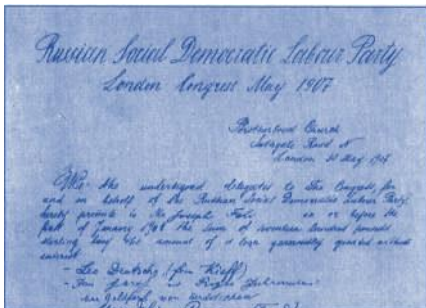 Russian Social Democratic Labour Party
London Congress May 1907
Brotherhood Church
Southgate Road N
London 31 May 1907
We the undersigned delegates to the Congress, for
and on behalf of the Russian Social Democratic Labour Party,
hereby promise to Mr Joseph Fels on or before the
first of January 1908 the sum of seventeen hundred pounds
sterling being the amount of a loan generously granted without
interest
- Leo Deutsch (from Kieff)